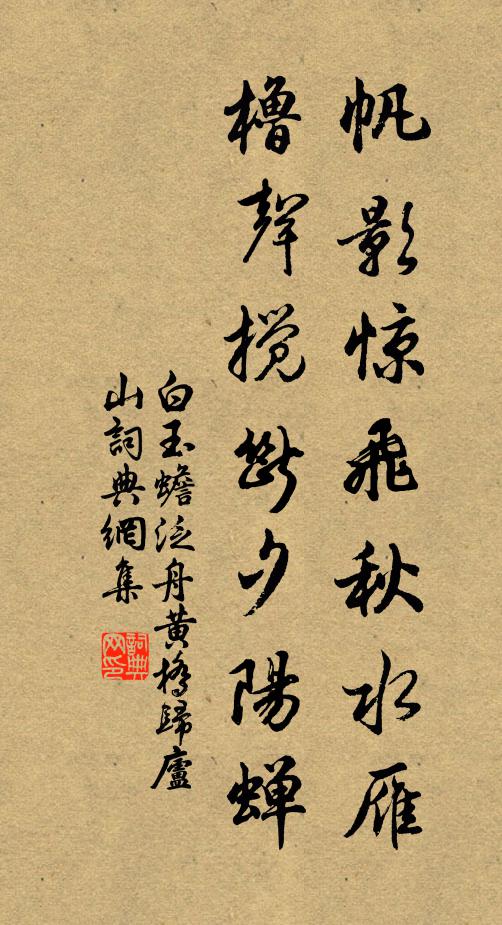 帆影惊飛秋水雁
櫓聲攪斷夕陽蟬
白玉蟾泛舟黄橋歸廬
山詞典網集
詞典网印